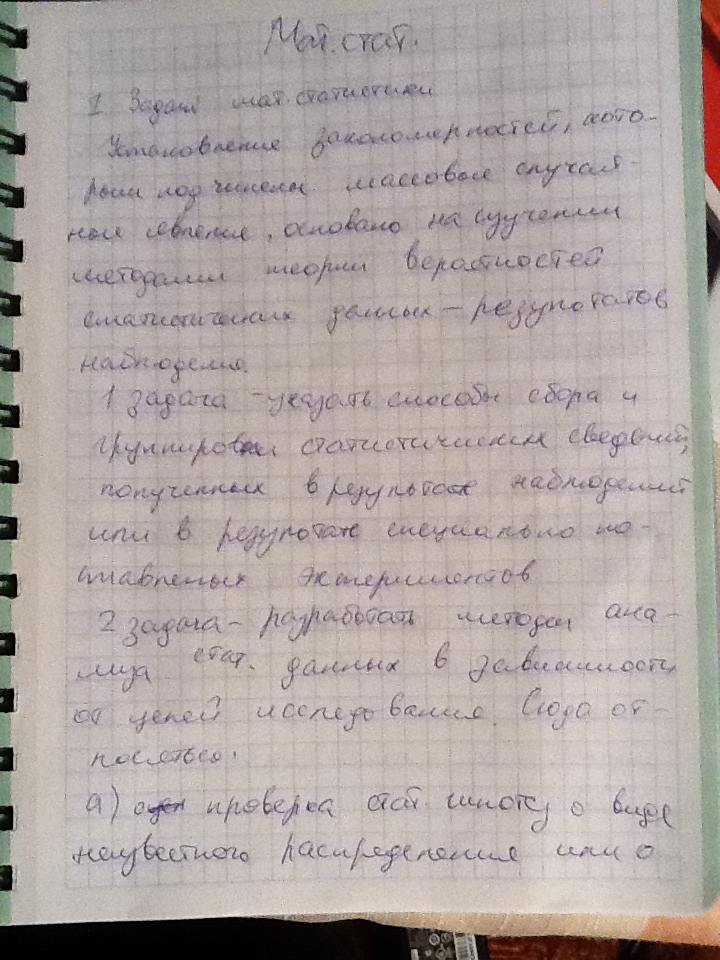 Мат. стат.
I Задачи мат статистики
Установление закономерностей, кото-
рым подчинены массовые случай-
ные явления, основано на изучении
методами теории вероятностей
статистических данных – результатов
наблюдения
1 задача – указать способы сбора и
группировки статистических сведений,
полученных в результате наблюдений
или в результате специально по-
ставленных экспериментов
2 задача – разработать методы ана-
лиза стат. данных в зависимости
от целей исследования. Сюда от-
носиться:
а) проверка стат. гипотез о виде
неизвестного распределения или о